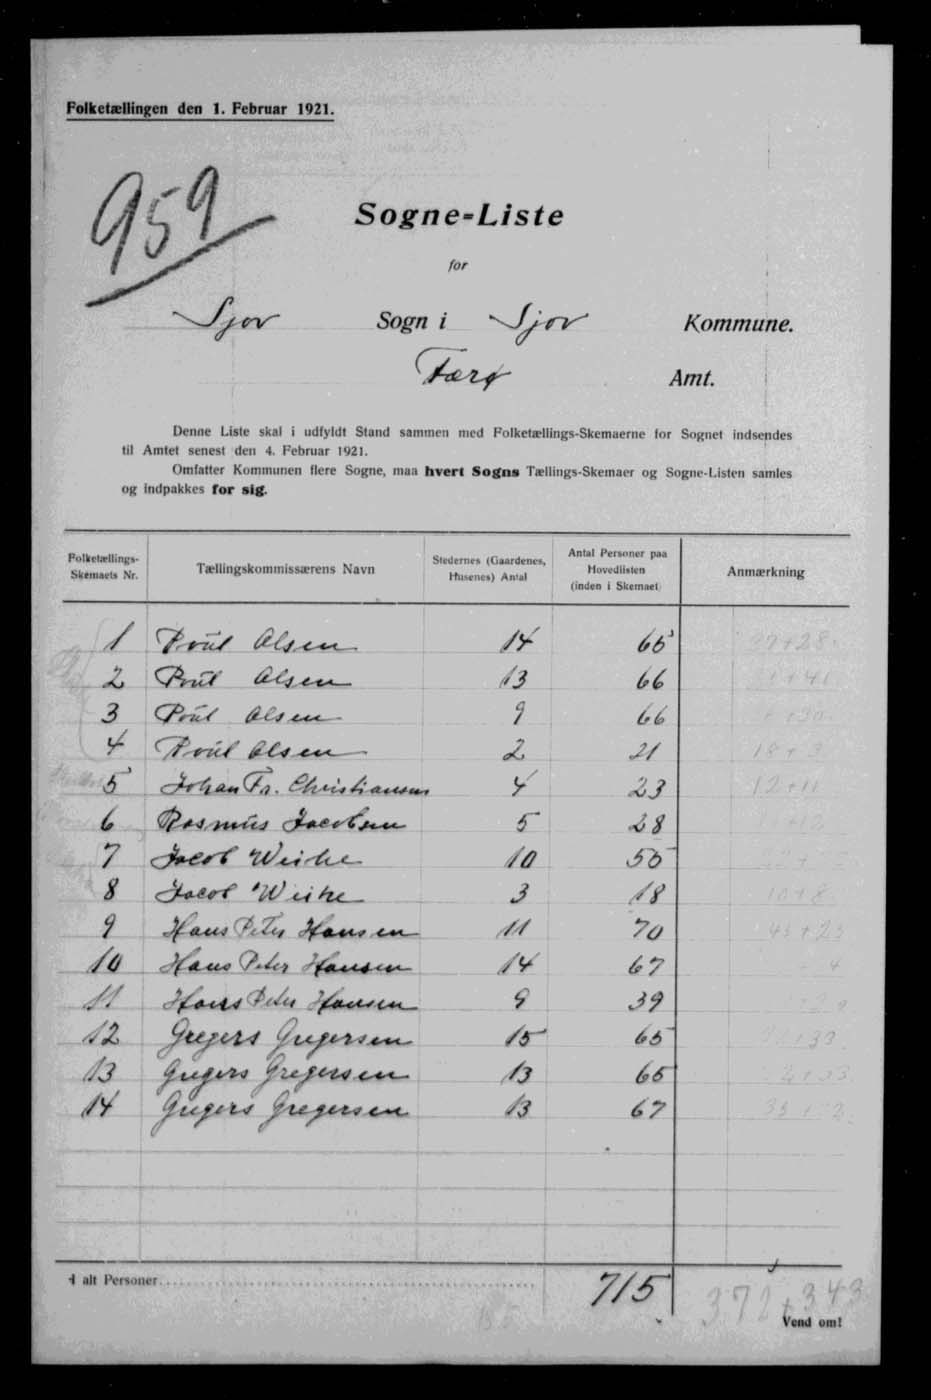 Folketællingen den 1. Februar 1921.
959
Sogne-Liste
for
Sjov Sogn i Sjov Kommune.
Færø Amt.
Denne Liste skal i udfyldt Stand sammen med Folketællings-Skemaerne for Sognet indsendes
til Amtet senest den 4. Februar 1921.
Omfatter Kommunen flere Sogne, maa hvert Sogns Tællings-Skemaer og Sogne-Listen samles
og indpakkes for sig.
Folketællings-Skemaets Nr. Tællingskommissærens Navn Stedernes (Gaardenes, Husenes) Antal Antal Personer paa Hovedlisten (inden i Skemaet) Anmærkning
1 Poul Olsen 14 65 37+28
2 Poul Olsen 13 66
3 Poul Olsen 9 66
4 Poul Olsen 2 21 18+3
5 Johan Fr. Christiansen 4 23 12+11
6 Rasmus Jacobsen 5 28
7 Jacob Weihe 10 55
8 Jacob Weihe 3 18 10+8
9 Hans Peter Hansen 11 70
10 Hans Peter Hansen 14 67
11 Hans Peter Hansen 9 39
12 Gregers Gregersen 15 65
13 Gregers Gregersen 13 65
14 Gregers Gregersen 13 67
I alt Personer 715 372+343
Vend om!